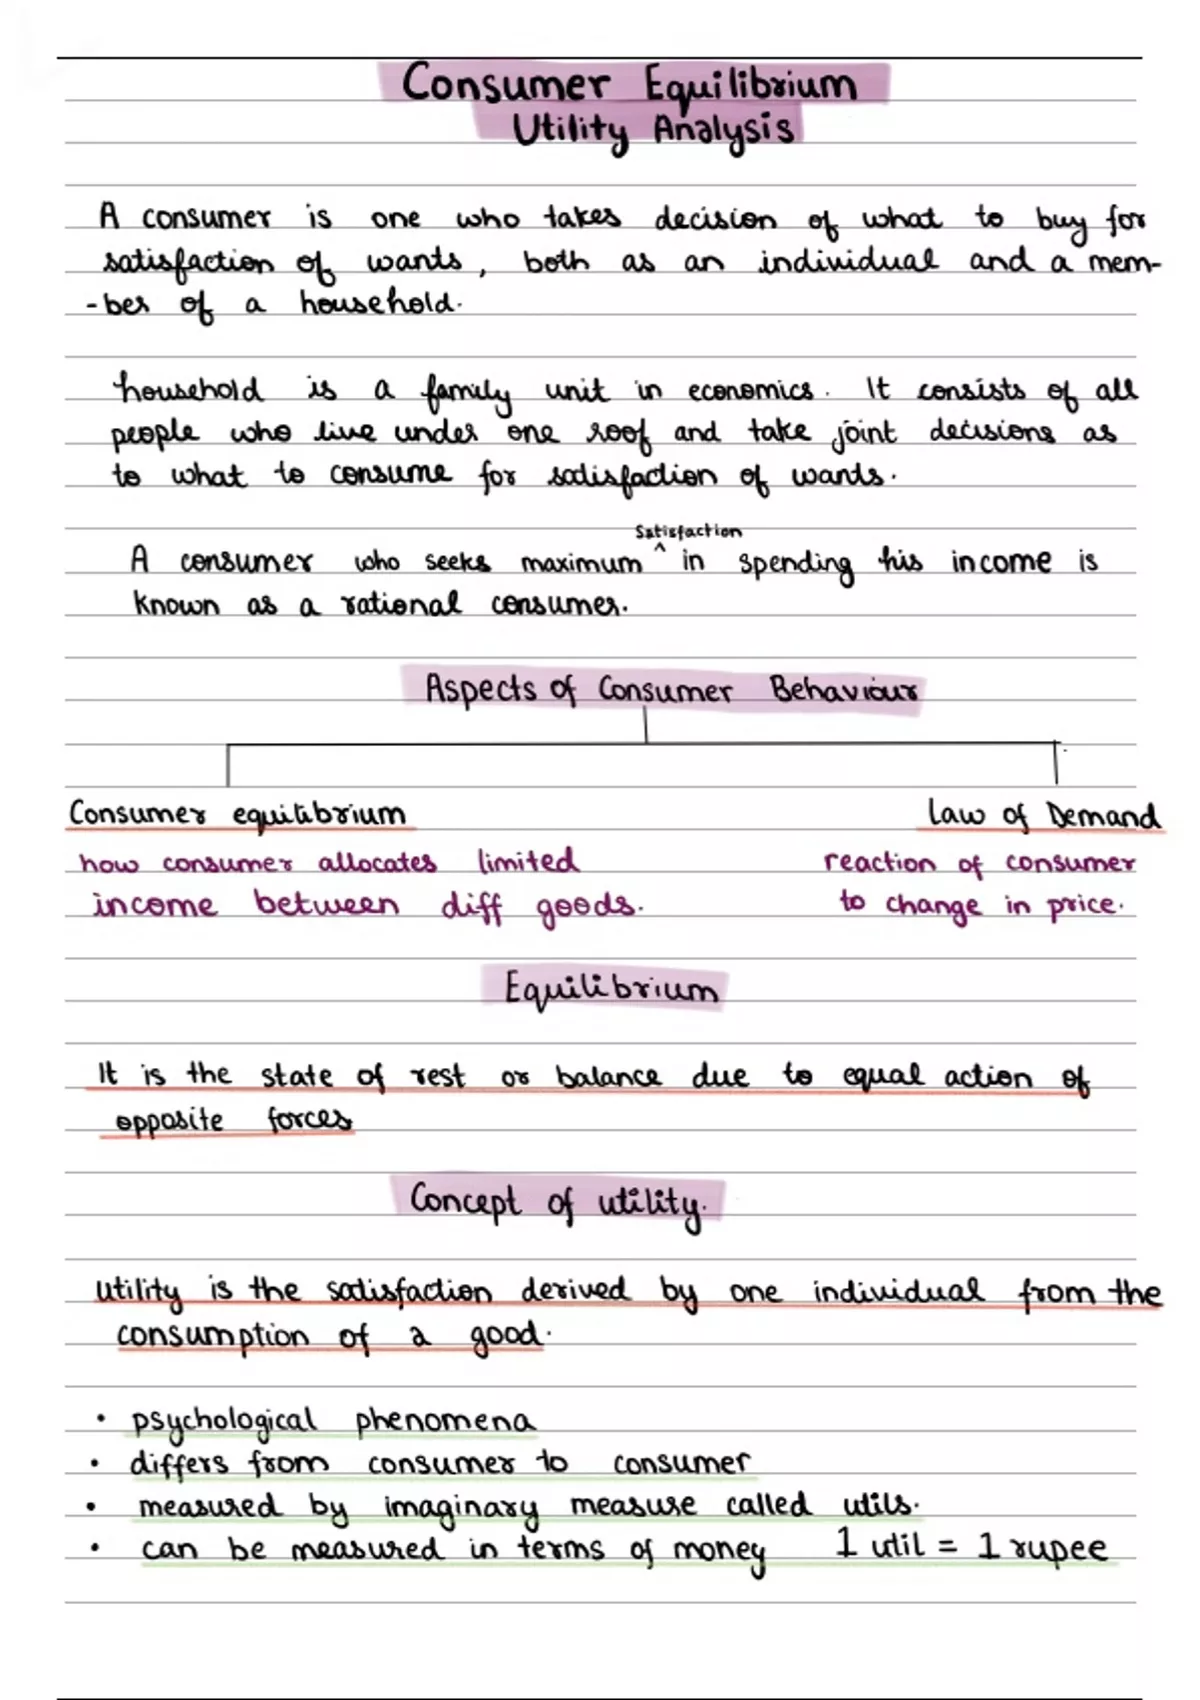 Consumer Equilibrium
Utility Analysis
A consumer is one who takes decision of what to buy for
satisfaction of wants, both as an individual and a mem-
-ber of a household.
household is a family unit in economics. It consists of all
people who live under one roof and take joint decisions as
to what to consume for satisfaction of wants.
Satisfaction
A consumer who seeks maximum ^ in spending his income is
known as a rational consumer.
Aspects of Consumer Behaviour
Consumer equilibrium
Law of Demand
how consumer allocates limited
income between diff goods.
reaction of consumer
to change in price.
Equilibrium
It is the state of rest or balance due to equal action of
opposite forces
Concept of utility.
utility is the satisfaction derived by one individual from the
consumption of a good.
• psychological phenomena
• differs from consumer to consumer
• measured by imaginary measure called utils.
• can be measured in terms of money 1 util = 1 rupee